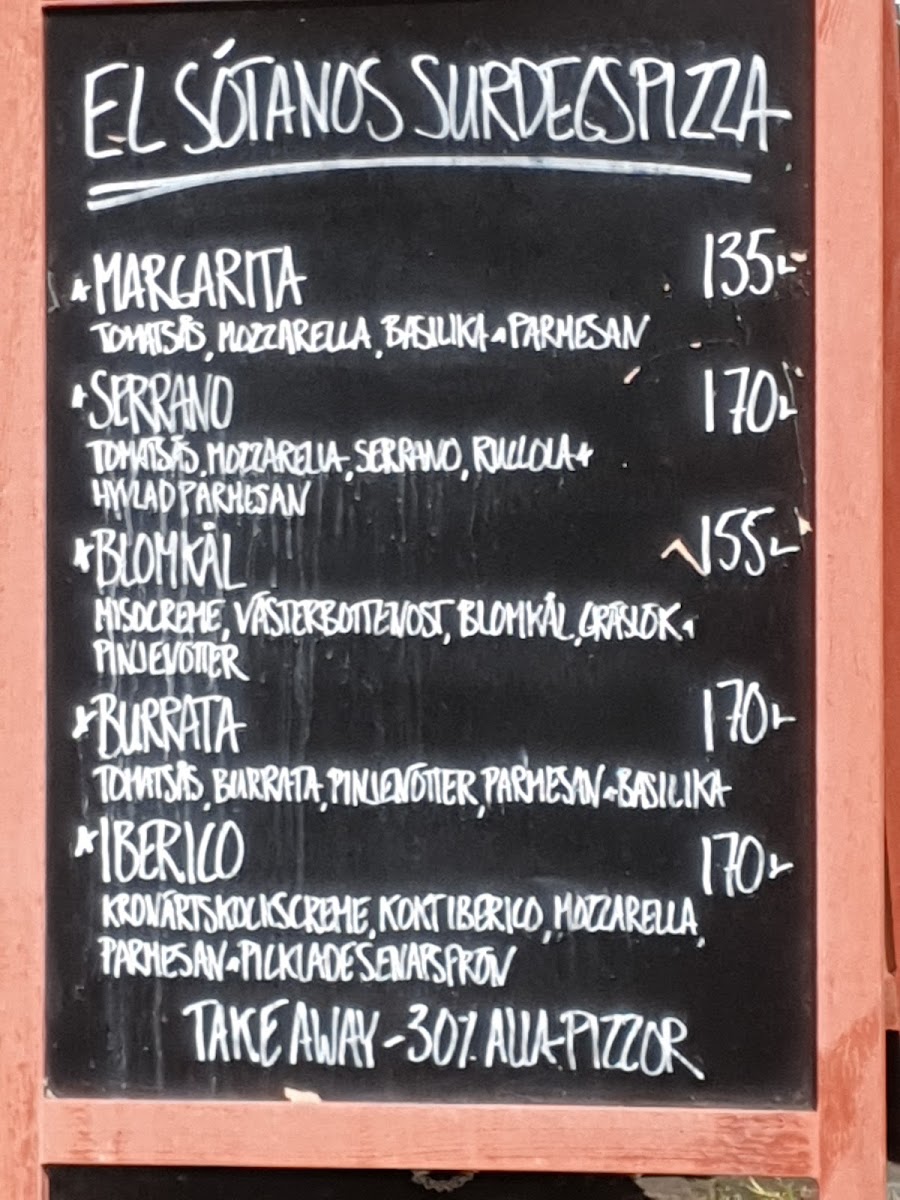 EL SÓTANOS SURDEGSPIZZA
* MARGARITA 135:-
TOMATSÅS, MOZZARELLA, BASILIKA & PARMESAN
* SERRANO 170:-
TOMATSÅS, MOZZARELLA, SERRANO, RUCCOLA &
HYVLAD PARMESAN
* BLOMKÅL 155:-
MISOCREME, VÄSTERBOTTENOST, BLOMKÅL, GRÄSLÖK &
PINJENÖTTER
* BURRATA 170:-
TOMATSÅS, BURRATA, PINJENÖTTER, PARMESAN & BASILIKA
* IBERICO 170:-
KRONÄRTSKOCKSCREME, KOKT IBERICO, MOZZARELLA,
PARMESAN & PICKLADE SENAPSFRÖN
TAKE AWAY -30% ALLA PIZZOR